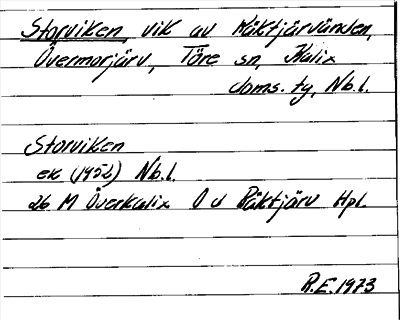 Storviken, vik av Råktjärvänden,
Övermorjärv, Töre sn, Kalix
doms. tg, Nb.l.
Storviken
ek (1952) Nb.l.
26 M Överkalix O d Råktjärv Hpl.
R.E. 1973